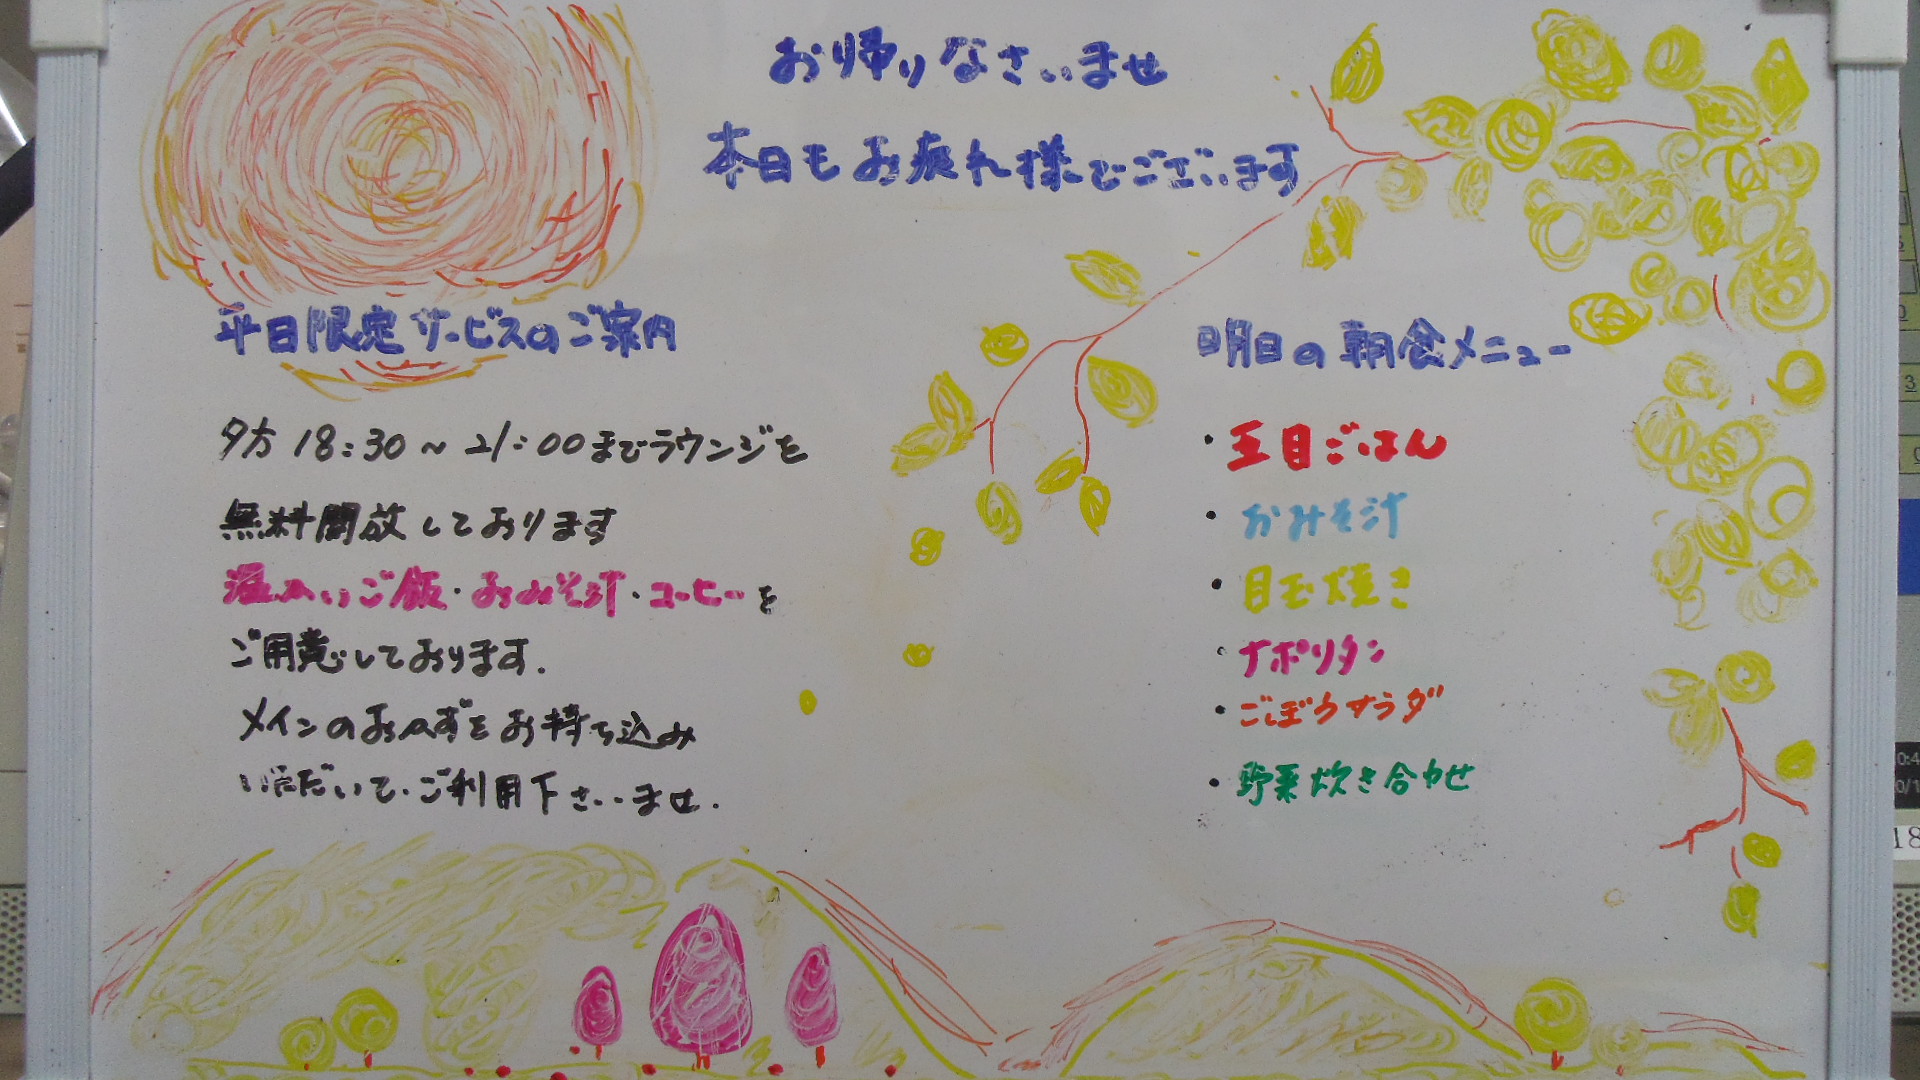 お帰りなさいませ
本日もお疲れ様でございます
平日限定サービスのご案内
夕方 18:30～21:00までラウンジを
無料開放しております
温かいご飯・おみそ汁・コーヒーを
ご用意しております.
メインのおかずをお持ち込み
いただいて、ご利用下さいませ.
明日の朝食メニュー
・五目ごはん
・おみそ汁
・目玉焼き
・ナポリタン
・ごぼうサラダ
・野菜炊き合わせ